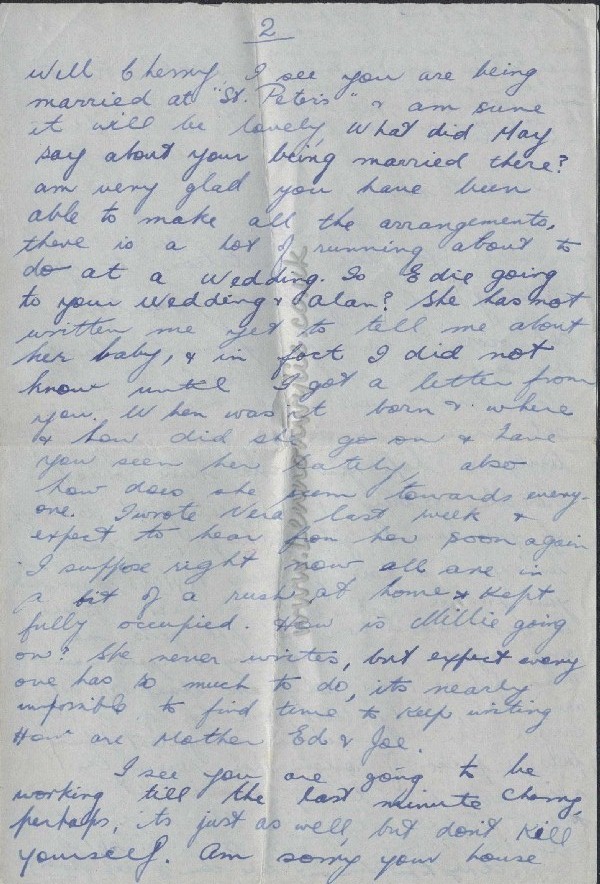 2
Well Cherry, I see you are being
married at "St. Peters" & am sure
it will be lovely, What did May
say about your being married there?
am very glad you have been
able to make all the arrangements,
there is a lot of running about to
do at a Wedding. Is Edie going
to your Wedding & Alan? She has not
written me yet to tell me about
her baby, & in fact I did not
know until I got a letter from
you. When was it born & where
& how did she go on & have
you seen her lately, also
how does she seem towards every-
one. I wrote Vera last week &
expect to hear from her soon again
I suppose right now all are in
a bit of a rush at home & kept
fully occupied. How is Millie going
on? She never writes, but expect every
one has so much to do, its nearly
impossible to find time to keep writing
How are Mother Ed & Joe.
I see you are going to be
working till the last minute Cherry,
perhaps, its just as well, but don't kill
yourself. Am sorry your house